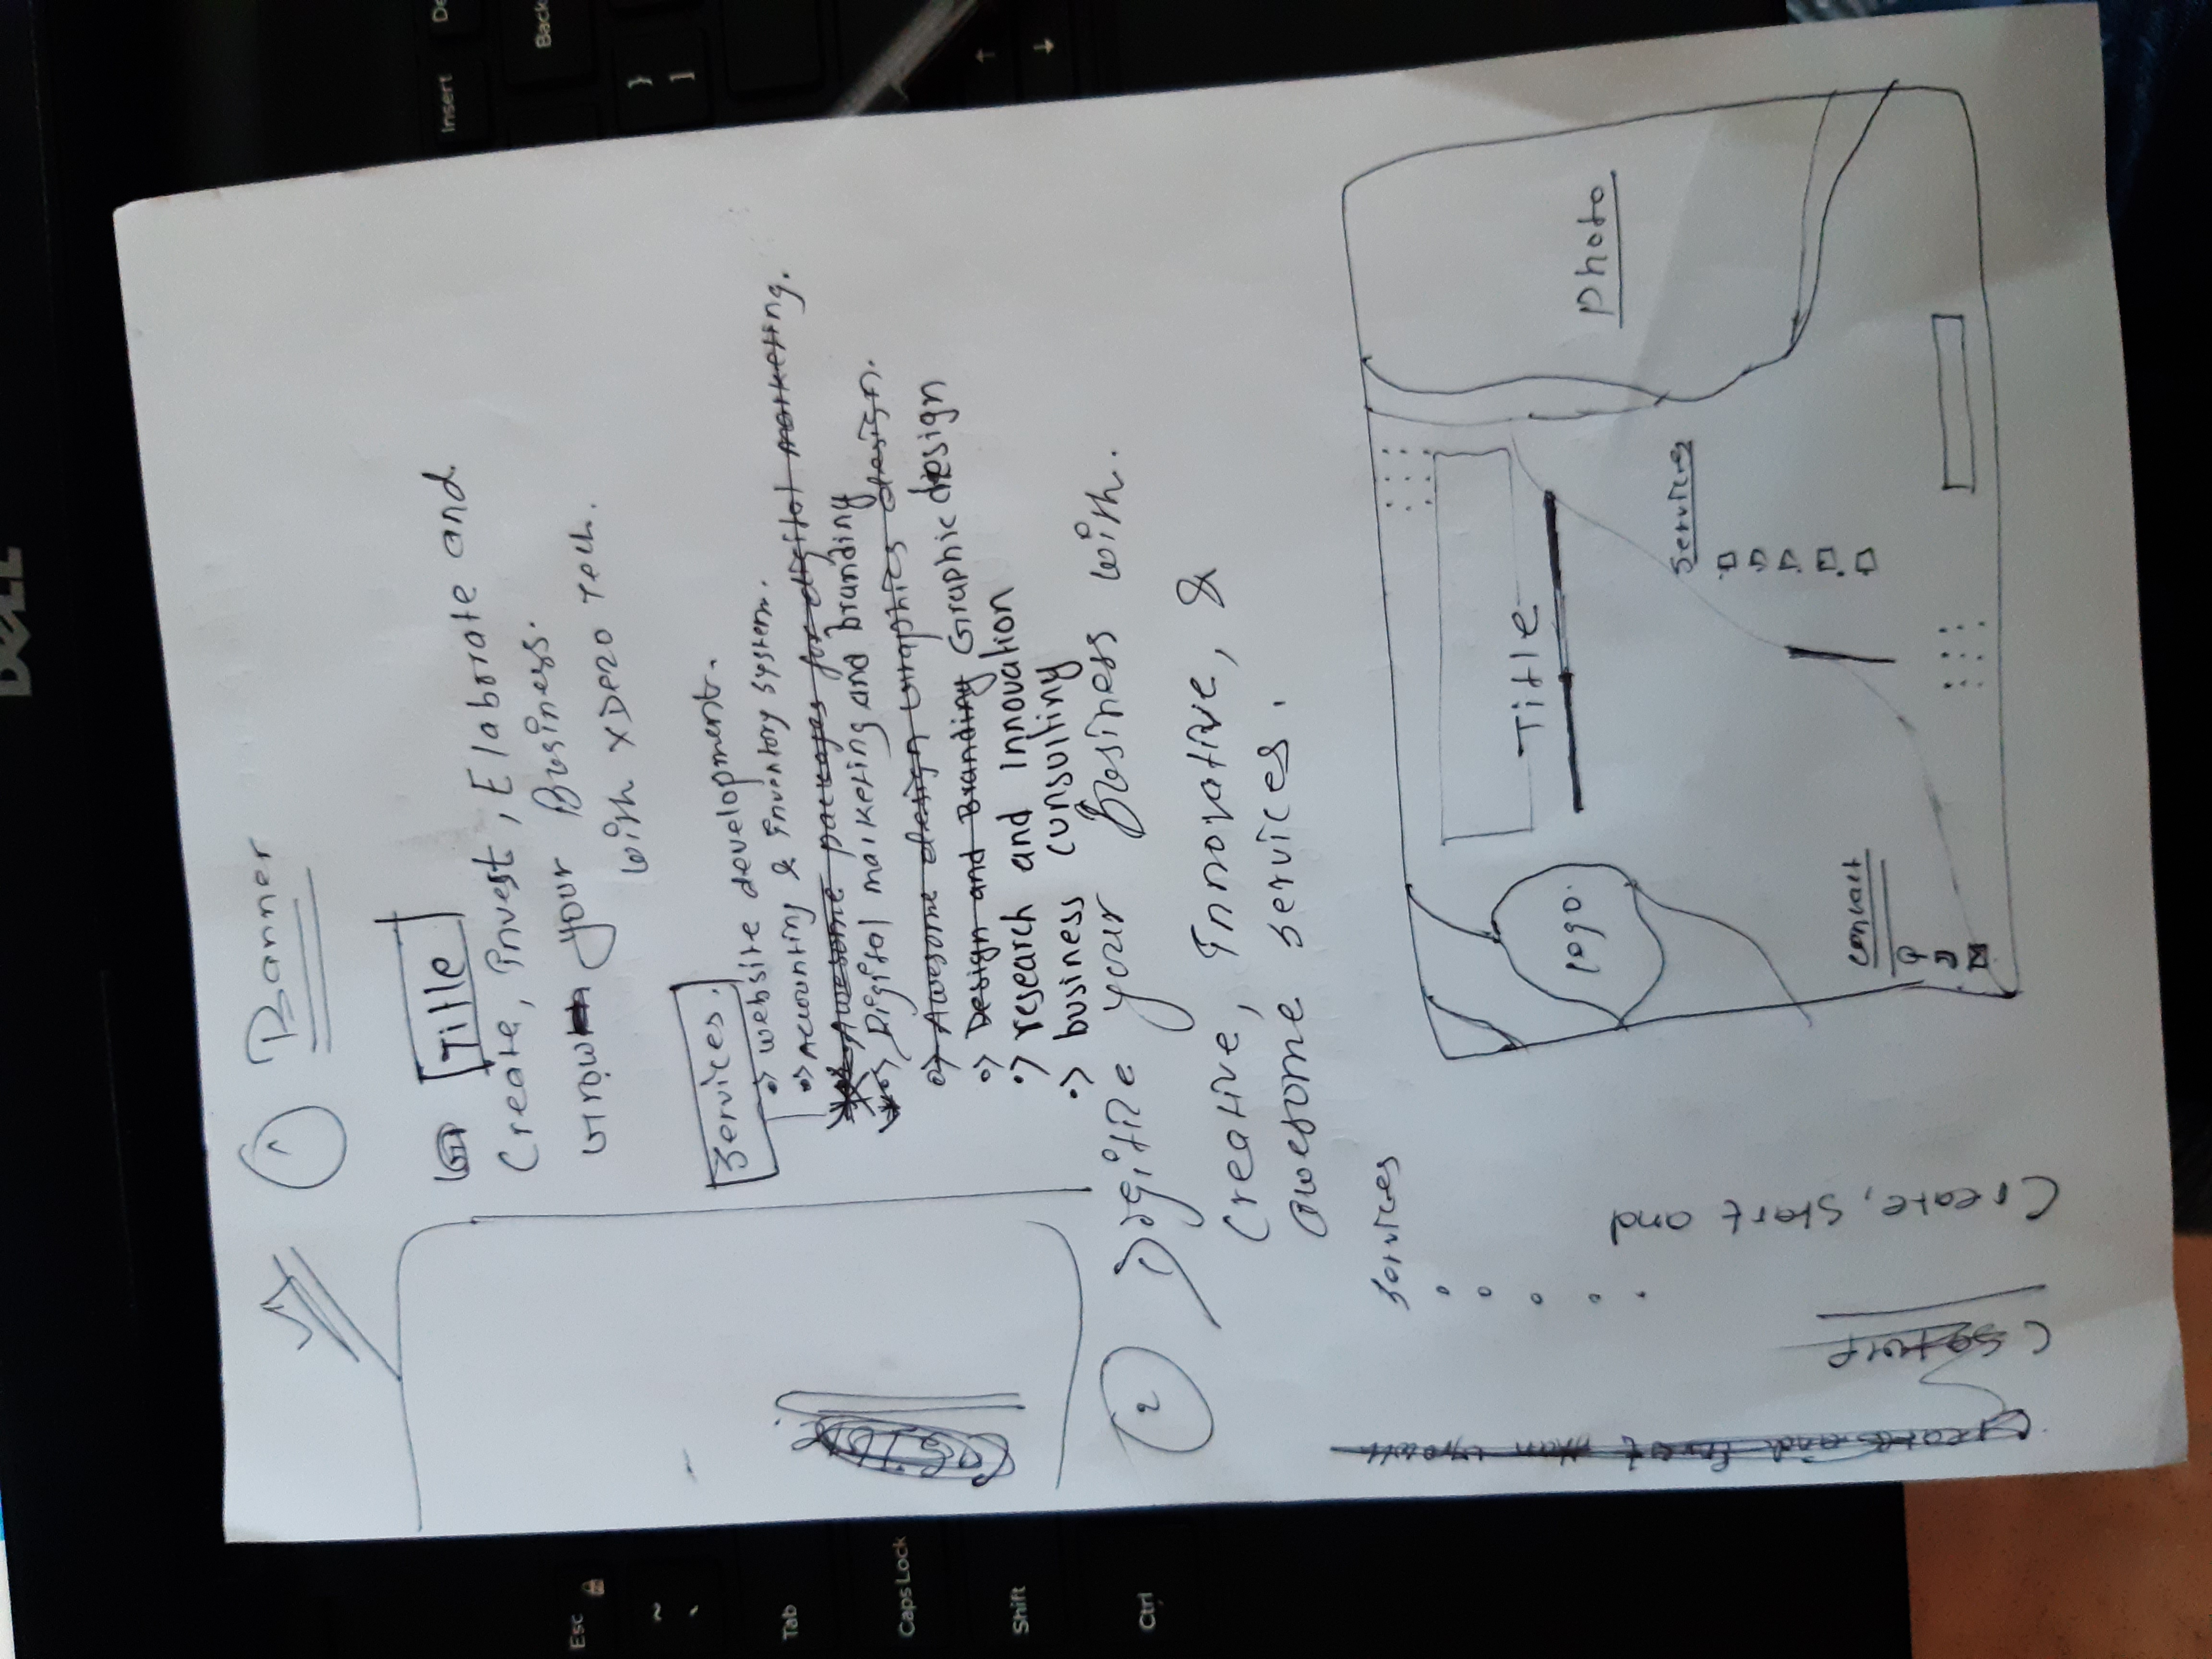 DELL
1 Banner
Title
Create, invest, Elaborate and
Grow your Business.
with XDezo Tech.
Services.
website development.
Accounting & inventory system.
Awesome packages for digital marketing.
Digital marketing and branding
Awesome design Graphics design.
Design and Branding Graphic design
research and innovation
business consulting
2 Digitize your Business with.
Creative, Innovative, &
awesome services.
Services
Create, Start and
Title
logo.
Photo
Services
contact
Esc
~
`
Tab
Caps Lock
Shift
Ctrl
Insert
De
Back
}
]
↑
↓